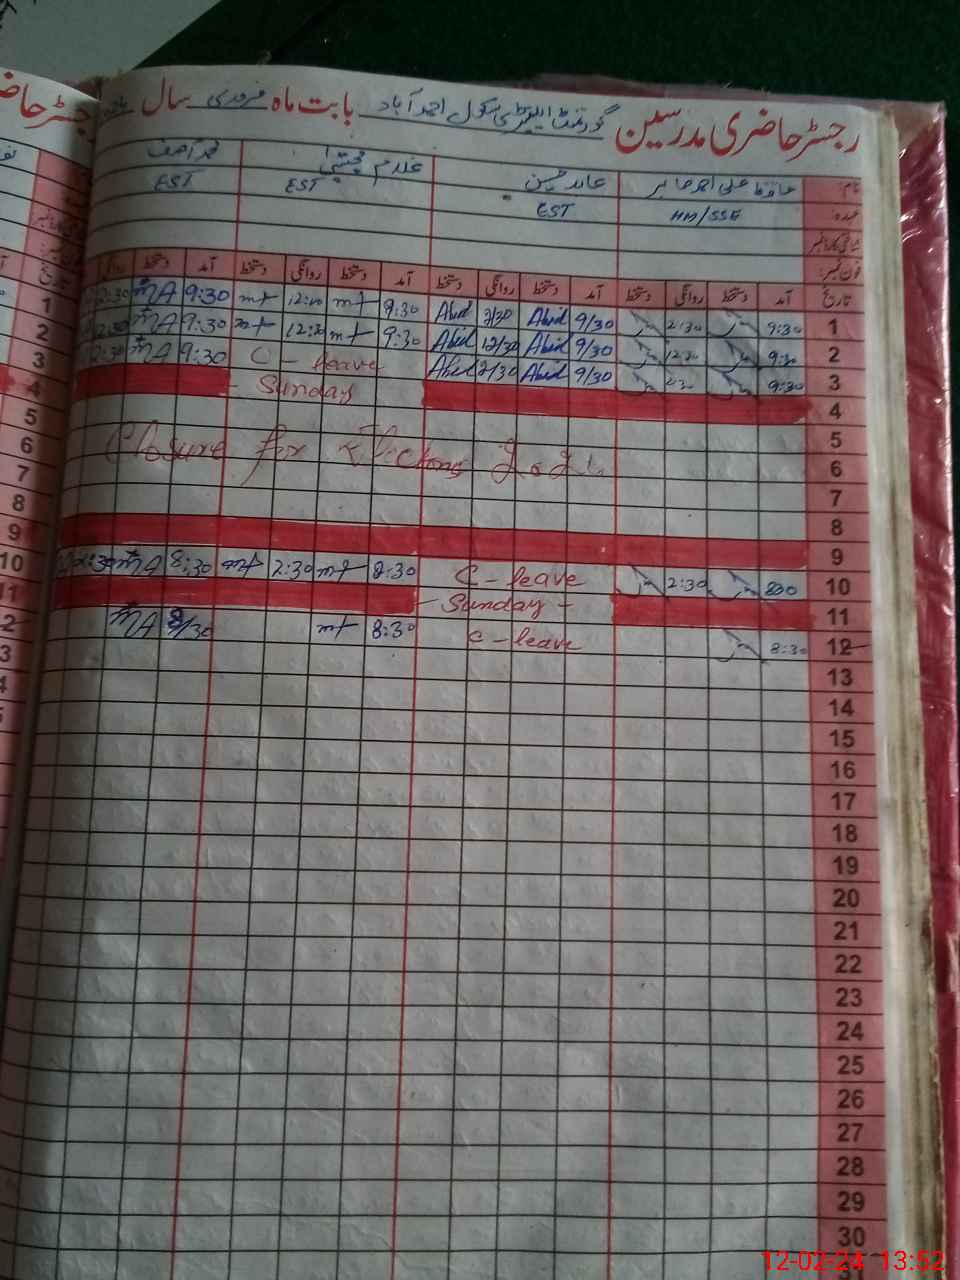 رجسٹر حاضری مدرسین گورنمنٹ ایلیمنٹری سکول احمد آباد بابت ماہ فروری سال
نام: حافظ علی احمد صابر عابد حسین غلام مجتبیٰ محمد آصف
عہدہ: HM/SSE EST EST EST
شناختی کارڈ نمبر:
فون نمبر:
تاریخ آمد دستخط روانگی دستخط آمد دستخط روانگی دستخط آمد دستخط روانگی دستخط آمد دستخط روانگی
1 9:30 2:30 9/30 Abid Abid 9:30 mt mt 9:30 MA 2:30
2 9:30 9/30 Abid 12/30 Abid 9:30 mt 12:30 mt 9:30 MA 12:30
3 9:30 9/30 Abid Abid C - leave 9:30 MA 2:30
4 Sunday
5
6 Closure for Elections
7
8
9
10 2:30 C - leave 8:30 mt 2:30 mt 8:30 MA 2:30
11 - Sunday -
12 8:30 C - leave 8:30 mt 8/30 MA
13
14
15
16
17
18
19
20
21
22
23
24
25
26
27
28
29
30
12-02-24 13:52